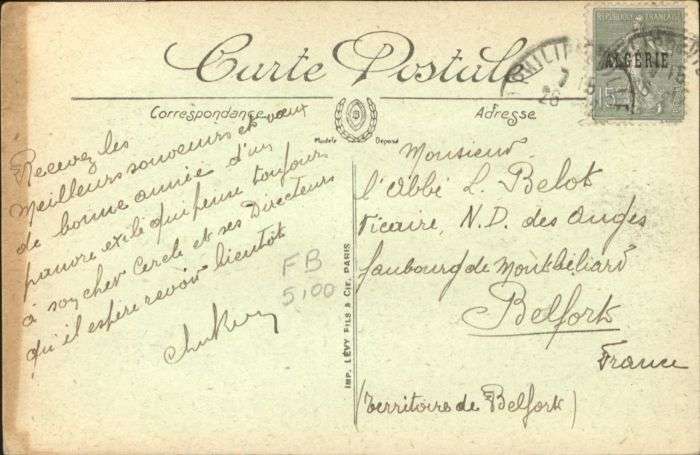 Carte Postale
Correspondance
Adresse
Modèle Déposé
RÉPUBLIQUE FRANÇAISE
ALGÉRIE
15
PHILIPP
26
Recevez les
Meilleurs souvenirs et vœux
de bonne année d'un
pauvre exilé qui pense toujours
à son cher Cercle et ses Directeurs
qu'il espère revoir bientôt
FB
5,00
IMP. LÉVY FILS & CIE, PARIS
Monsieur
l'Abbé L. Belot
Vicaire, N.D. des Anges
faubourg de Montbéliard
Belfort
France
(Territoire de Belfort)